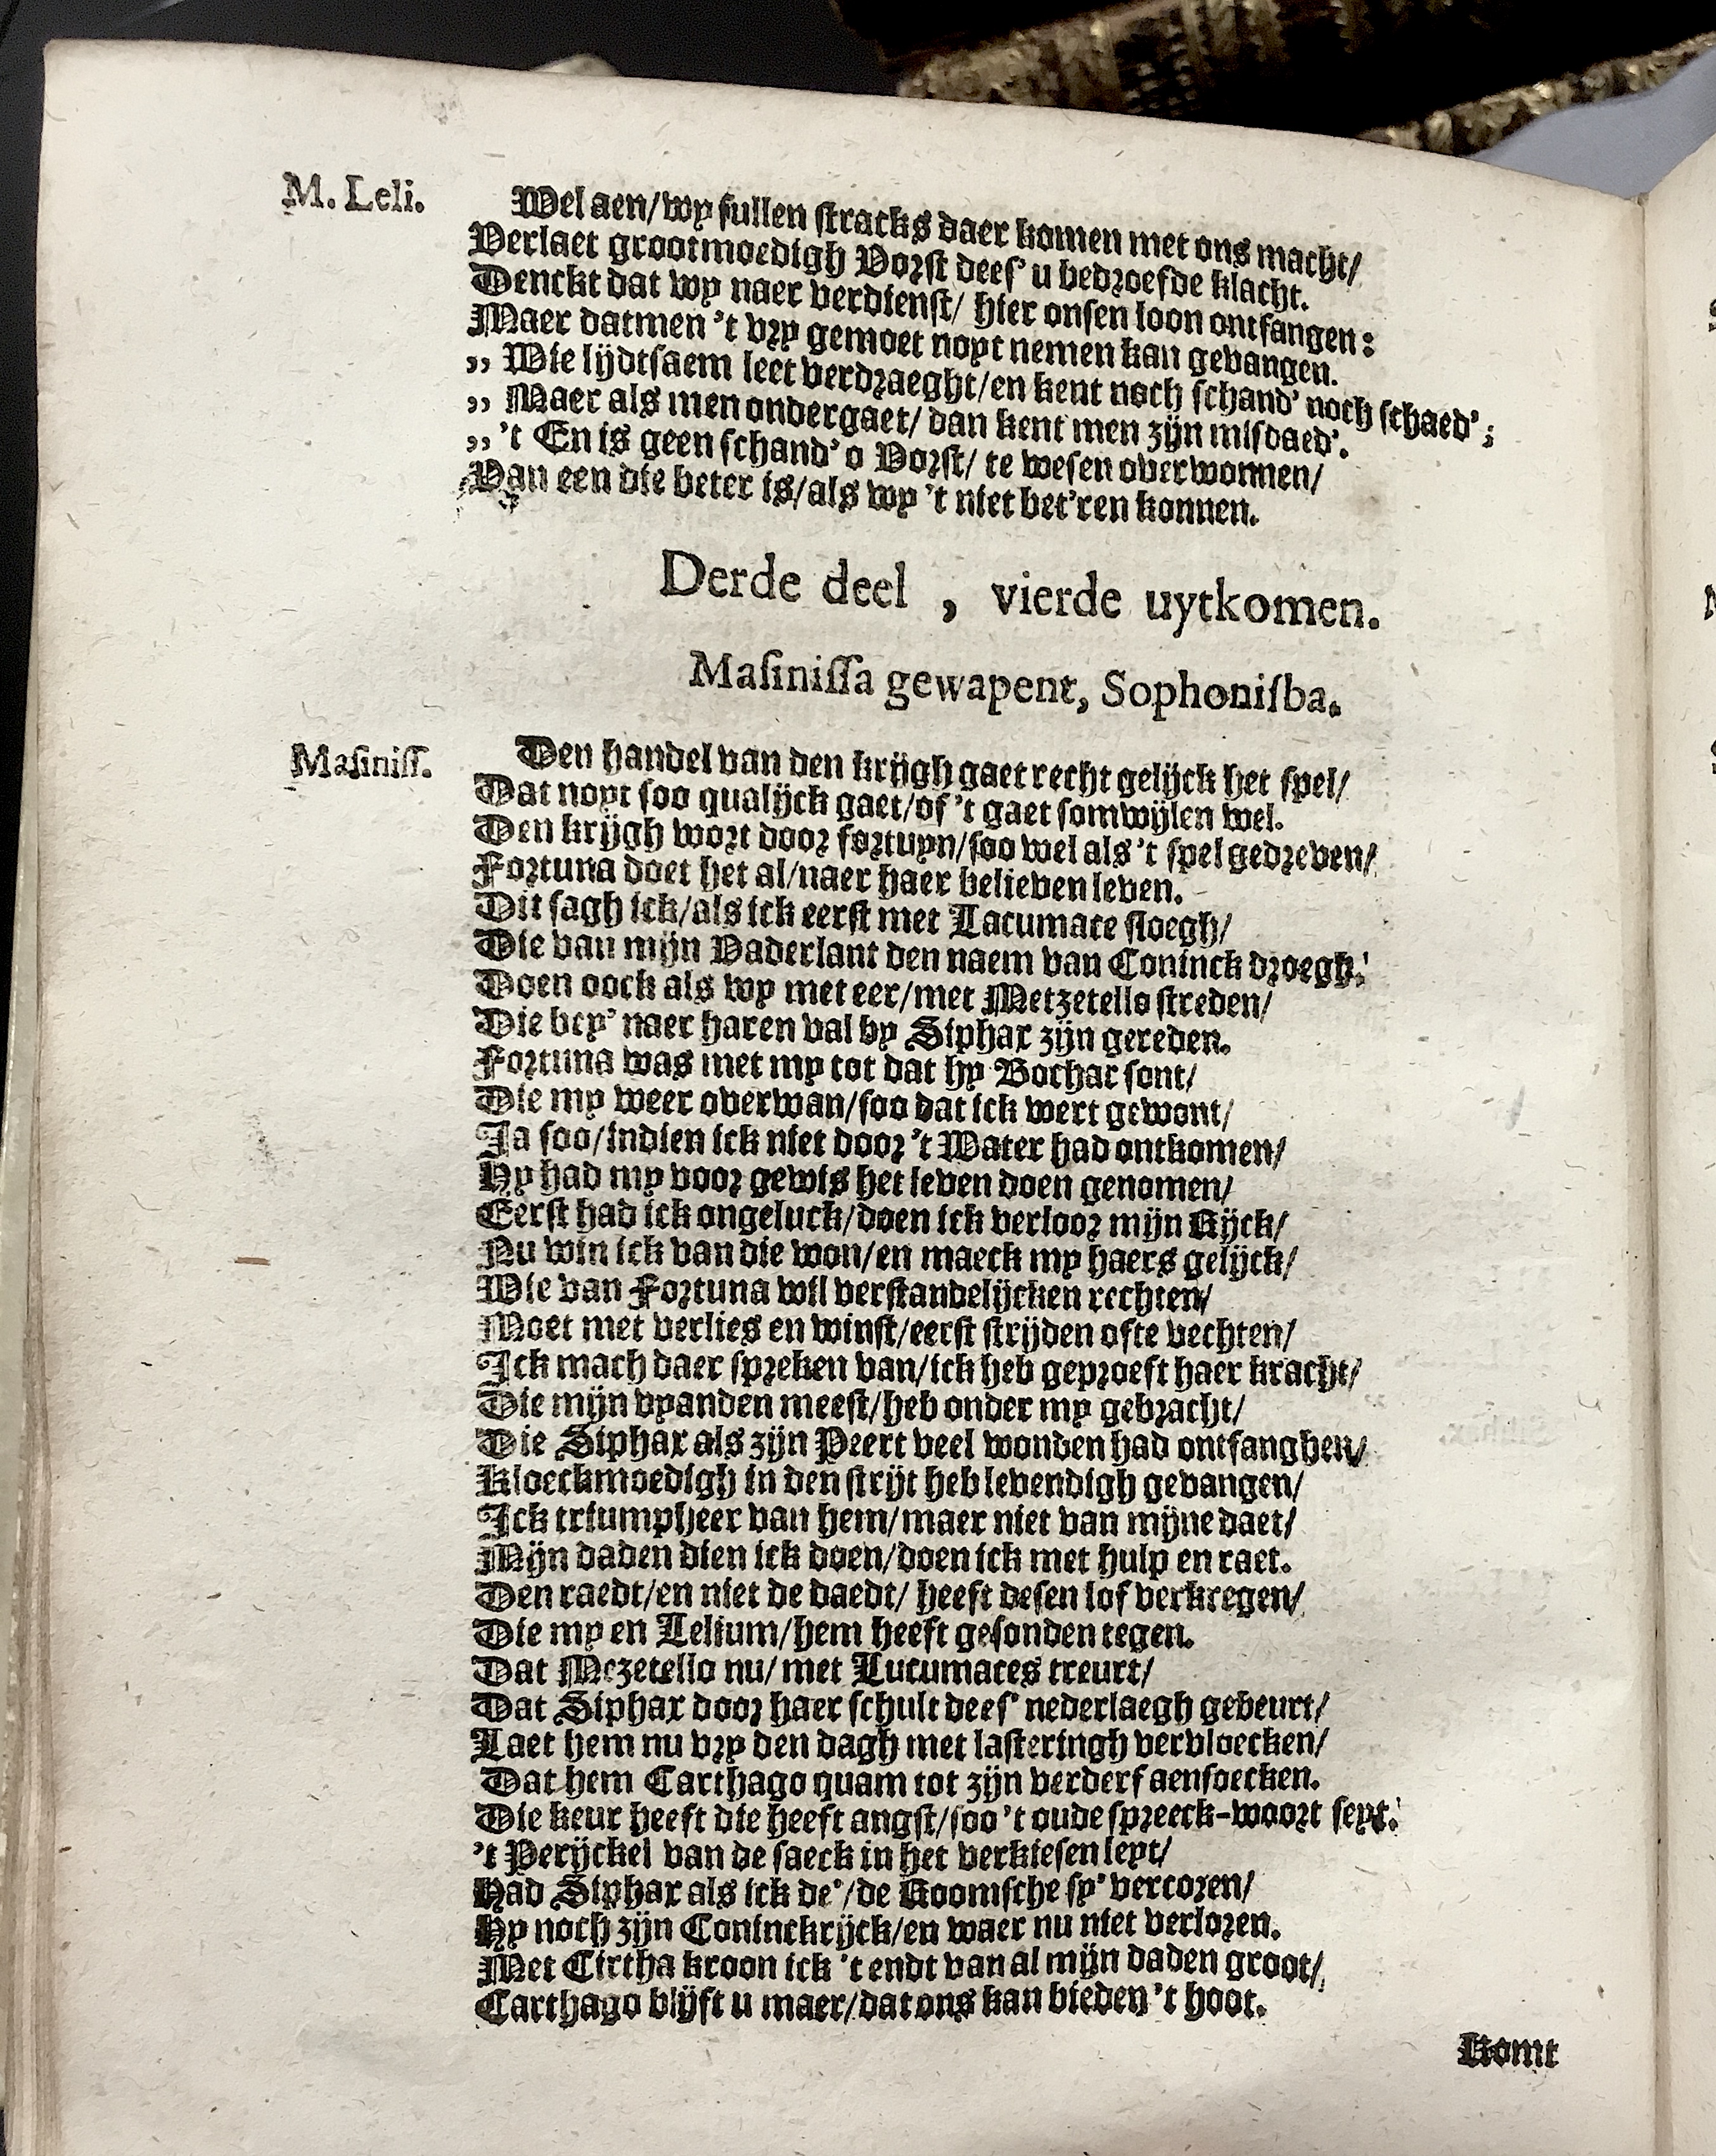 M. Leli. Wel aen/wy sullen stracks daer komen met ons macht/
Verlaet grootmoedigh Vorst dees' u bedroefde klacht.
Denckt dat wy naer verdienst/ hier onsen loon ontfangen:
Maer datmen 't vry gemoet noyt nemen kan gevangen.
,, Wie lijdtsaem leet verdraeght/en kent noch schand' noch schaed';
,, Maer als men ondergaet/ dan kent men zijn misdaed'.
,, 't En is geen schand' o Vorst/ te wesen overwonnen/
Van een die beter is/als wy 't niet bet'ren konnen.
Derde deel , vierde uytkomen.
Masinissa gewapent, Sophonisba.
Masiniss. Den handel van den krijgh gaet recht gelijck het spel/
Dat noyt soo qualijck gaet/of 't gaet somwijlen wel.
Den krijgh wort door fortuyn/soo wel als 't spel gedreven/
Fortuna doet het al/naer haer believen leven.
Dit sagh ick/als ick eerst met Lacumace sloegh/
Die van mijn Vaderlant den naem van Coninck droegh.
Doen oock als wy met eer/met Metzetello streden/
Die bey' naer haren val by Siphax zijn gereden.
Fortuna was met my tot dat hy Bochar sont/
Die my weer overwan/soo dat ick wert gewont/
Ja soo/indien ick niet door 't Water had ontkomen/
Hy had my voor gewis het leven doen genomen/
Eerst had ick ongeluck/doen ick verloor mijn Rijck/
Nu win ick van die won/en maeck my haers gelijck/
Wie van Fortuna wil verstandelijcken rechten/
Moet met verlies en winst/eerst strijden ofte vechten/
Ick mach daer spreken van/ick heb geproeft haer kracht/
Die mijn vyanden meest/heb onder my gebracht/
Die Siphax als zijn Peert veel wonden had ontfanghen/
Kloeckmoedigh in den strijt heb levendigh gevangen/
Ick triumpheer van hem/maer niet van mijne daet/
Mijn daden dien ick doen/doen ick met hulp en raet.
Den raedt/en niet de daedt/ heeft desen lof verkregen/
Die my en Lelium/hem heeft gesonden tegen.
Dat Mezetello nu/ met Lucumaces treurt/
Dat Siphax door haer schult dees' nederlaegh gebeurt/
Laet hem nu vry den dagh met lasteringh vervloecken/
Dat hem Carthago quam tot zijn verderf aensoecken.
Die keur heeft die heeft angst/soo 't oude spreeck-woort seyt.
't Perijckel van de saeck in het verkiesen leyt/
Had Siphax als ick de'/de Roomsche sy' vercoren/
Hy noch zijn Coninckrijck/en waer nu niet verloren.
Met Cirtha kroon ick 't endt van al mijn daden groot/
Carthago blijft u maer/dat ons kan bieden 't hoot.
Komt